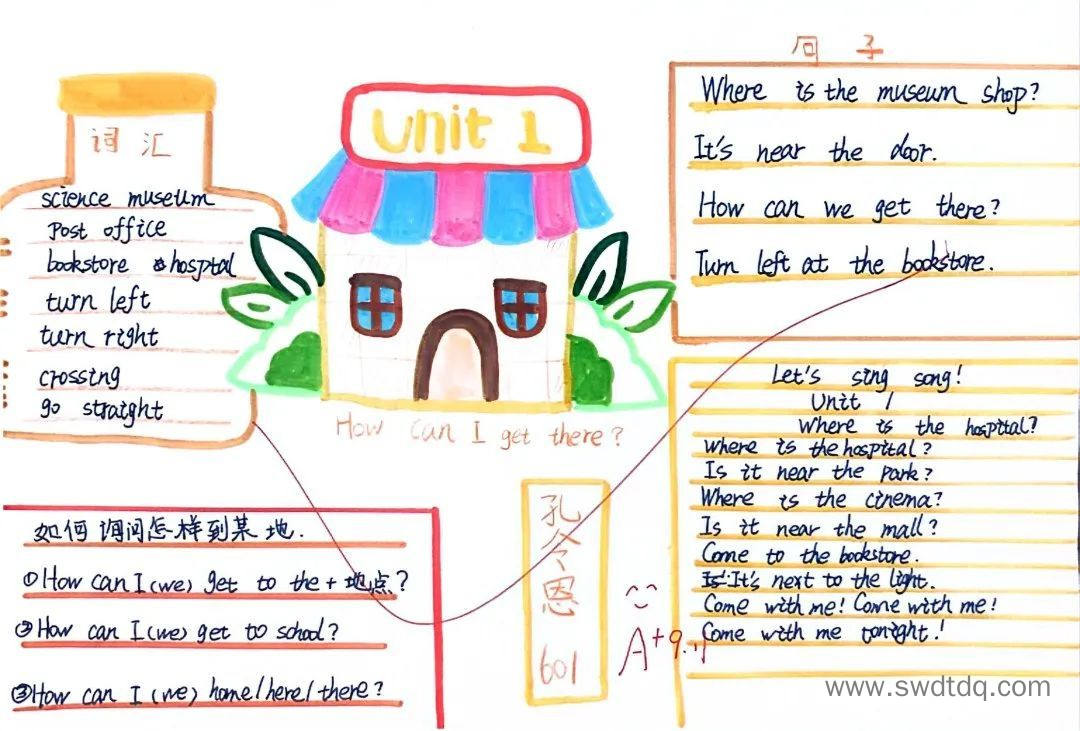 Unit 1
How can I get there?
词汇
science museum
Post office
bookstore hosptal
turn left
turn right
crossing
go straight
句子
Where is the museum shop?
It's near the door.
How can we get there?
Turn left at the bookstore.
如何询问怎样到某地.
①How can I (we) get to the + 地点?
②How can I (we) get to school?
③How can I (we) home/here/there?
孔令恩
601
A+
Let's sing song!
Unit 1
Where is the hospital?
Where is the hospital?
Is it near the park?
Where is the cinema?
Is it near the mall?
Come to the bookstore.
It's next to the light.
Come with me! Come with me!
Come with me tonight!
www.swdtdq.com